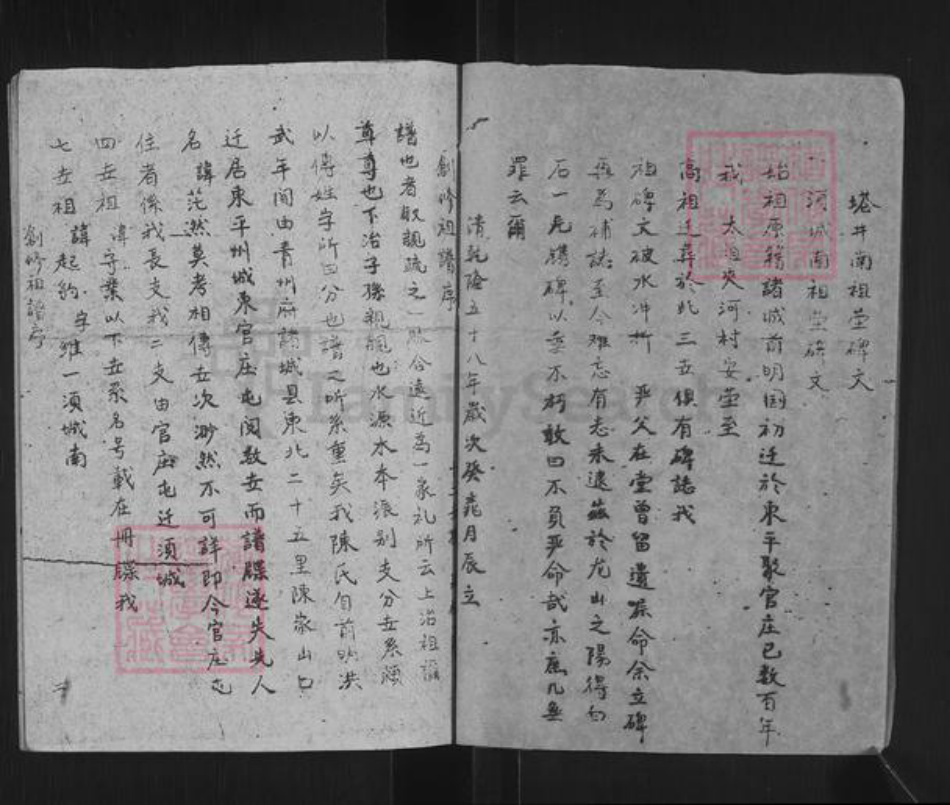 塔井南祖茔碑文
須城南祖茔碑文
始祖原籍諸城前明国初迁於東平聚官庄已数百年
我 太祖夾河村安茔至
高祖迁葬於此三五俱有碑誌我
祖碑文被水冲折 严父在堂曾留遺嘱命余立碑
為補誌至今难忘有志未遠兹於龙山之陽得白
石一尼鐫碑以垂不朽敢曰不負严命哉亦庶几無
罪云爾
清乾隆五十八年歲次癸月辰立
創修祖譜序
譜也者敘親疏之一脉合遠近為一家礼所云上治祖禰
尊尊也下治子孫親親也水源木本派别支分世系源
以傳姓字所曰分也譜之所系重矣我陳氏自前明洪
武年間由青州府諸城县東北二十五里陳家山口
迁居東平州城東官庄屯閲数世而譜牒遂失先人
名諱茫然莫考相傳世次渺然不可詳即今官庄屯
住者係我長支我二支由官庄屯迁須城
四世祖諱字業以下世系名号載在冊牒我
七世祖諱起豹字雄一須城南
創修祖譜序
FamilySearch